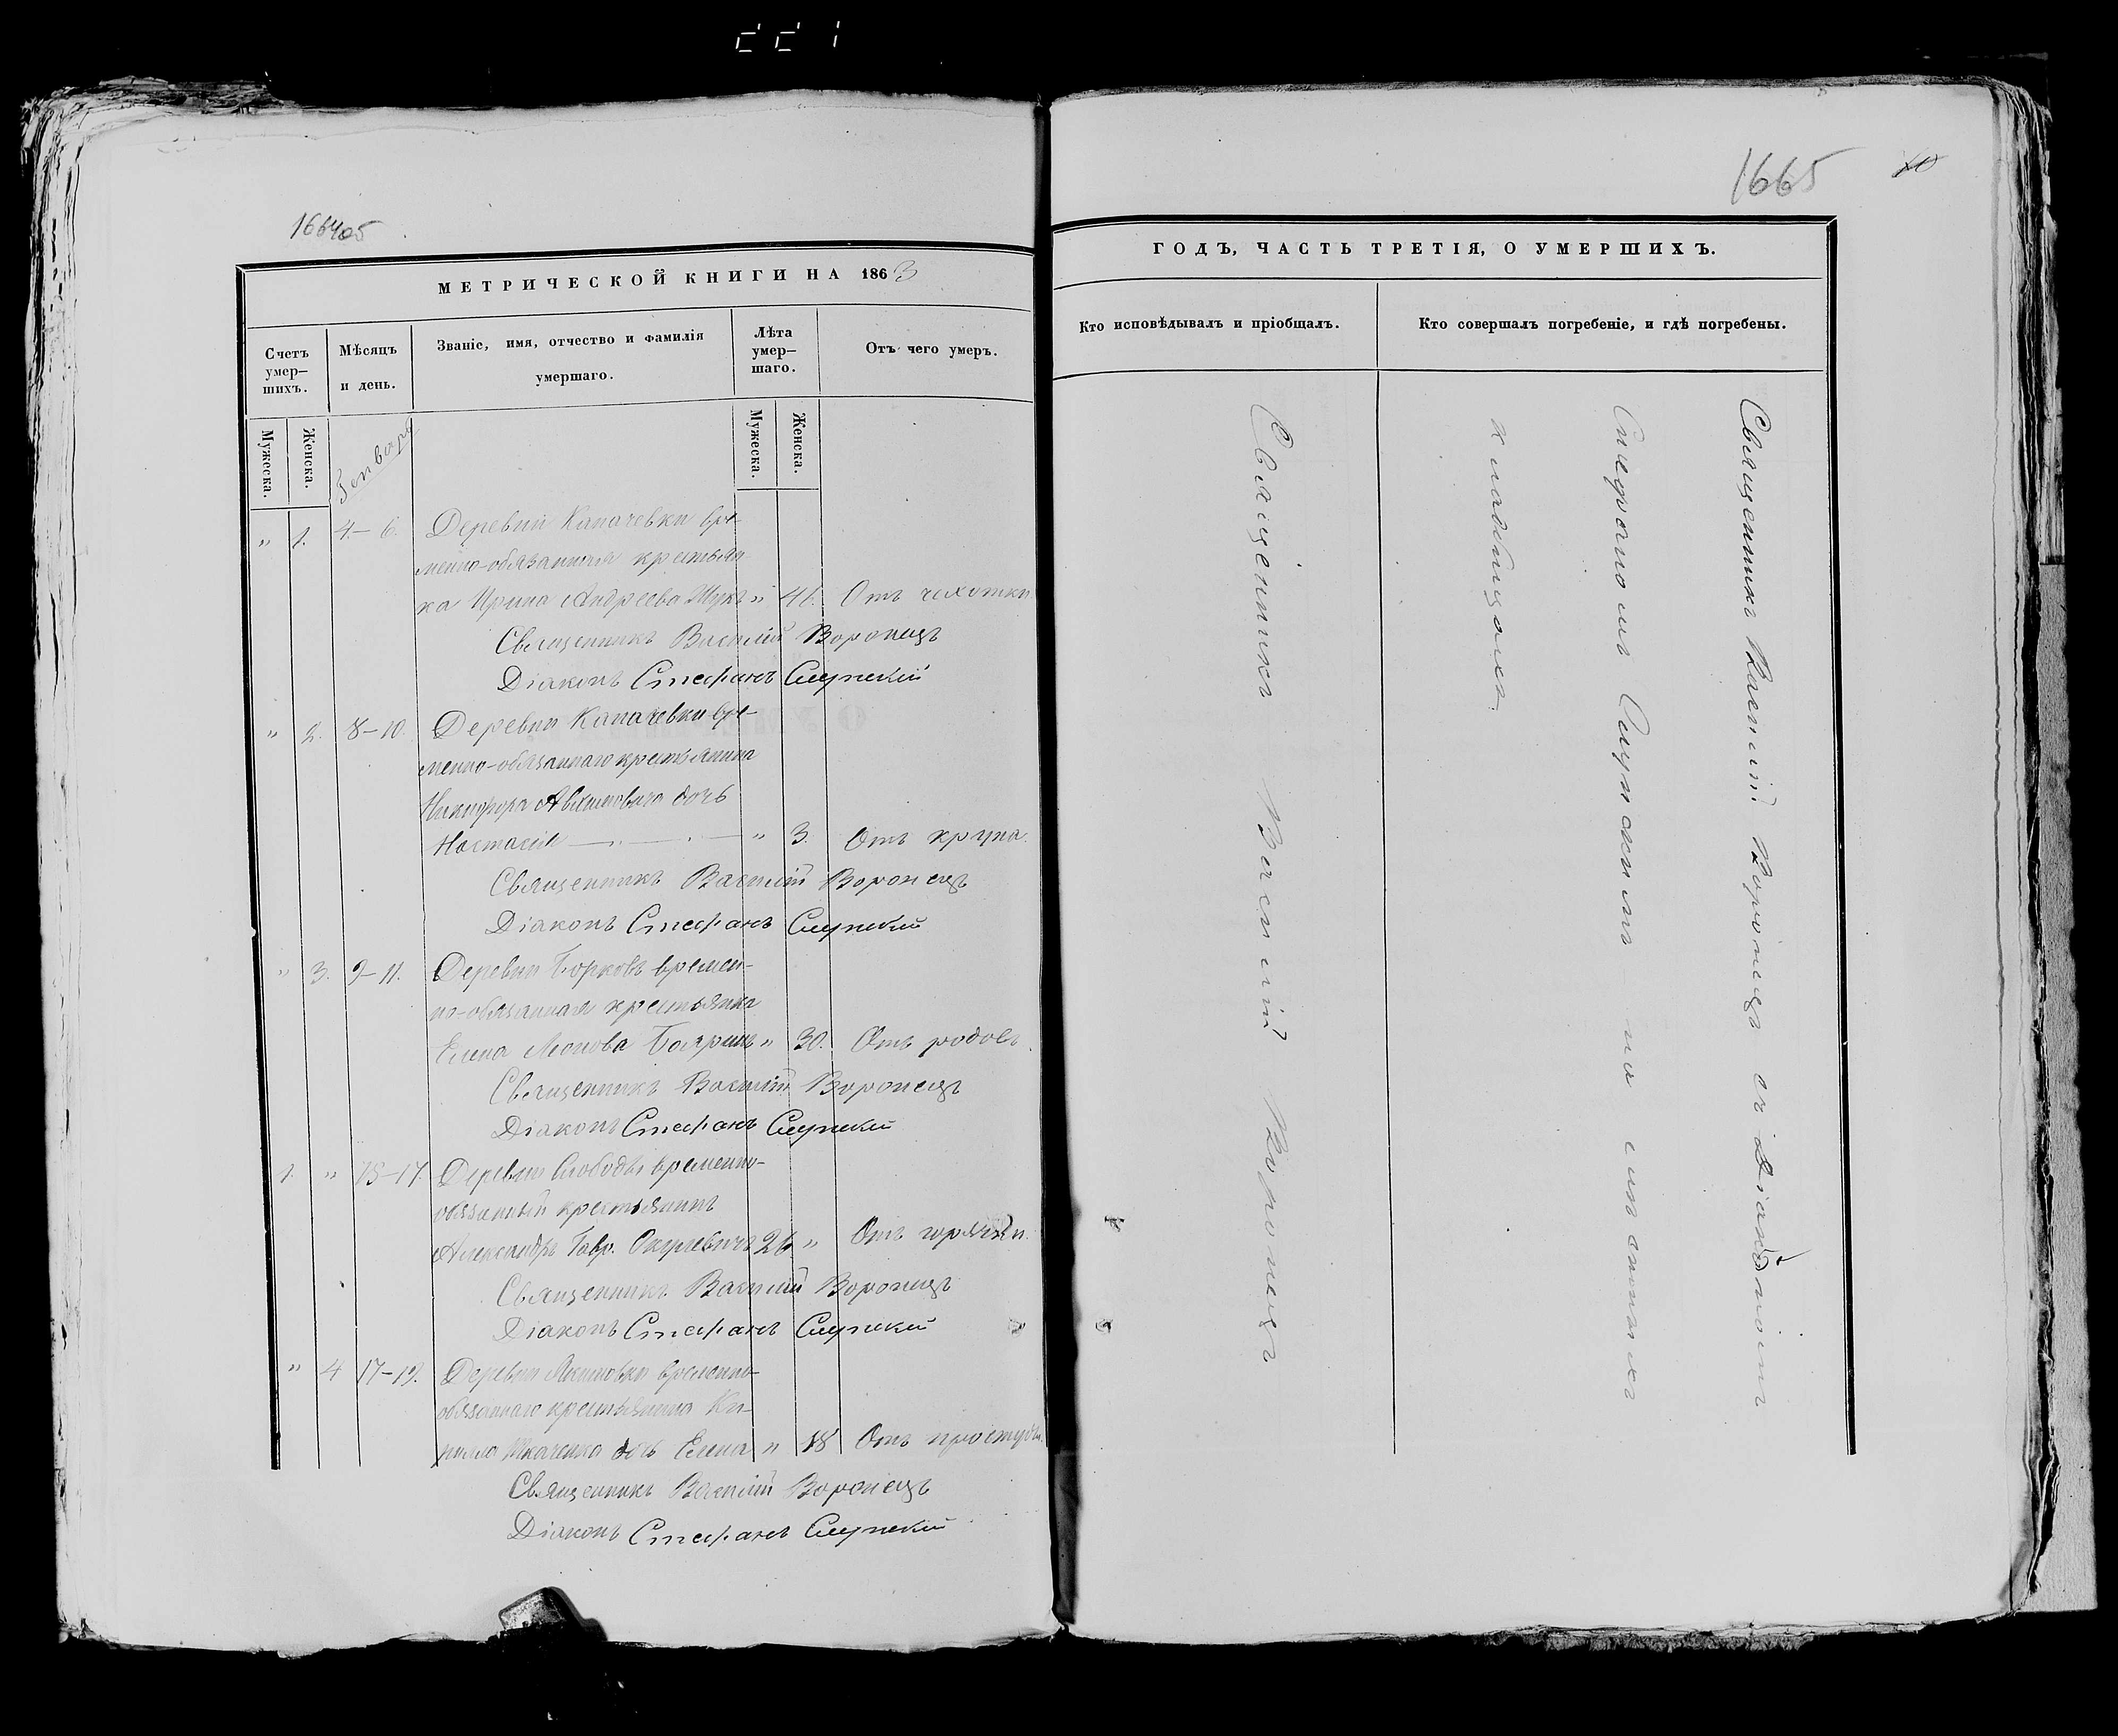 1665
166405
МЕТРИЧЕСКОЙ КНИГИ НА 1863
ГОДЪ, ЧАСТЬ ТРЕТІЯ, О УМЕРШИХЪ.
Счетъ умер–шихъ.
Мѣсяцъ и день.
Званіе, имя, отчество и фамилія умершаго.
Лѣта умер–шаго.
Отъ чего умеръ.
Кто исповѣдывалъ и пріобщалъ.
Кто совершалъ погребеніе, и гдѣ погребены.
Мужеска.
Женска.
Генварь
Мужеска.
Женска.
" 1. 4–6. Деревни Капачевки вре-
менно-обязанная крестьян-
ка Ирина Андреева Шукъ " 46. Отъ чахотки
Священникъ Василій Воронецъ
Діаконъ Стефанъ Слупскій
" 2. 8–10. Деревни Капачевки вре-
менно-обязаннаго крестьянина
Никифора дочь
Настасія " 3. Отъ крупа.
Священникъ Василій Воронецъ
Діаконъ Стефанъ Слупскій
" 3. 9–11. Деревни Борковъ времен-
но-обязанная крестьянка
Елена " 30. Отъ родовъ.
Священникъ Василій Воронецъ
Діаконъ Стефанъ Слупскій
1. " 15–17. Деревни Слободы временно-
обязанный крестьянинъ
Александръ Гавр. 26 " Отъ горячки.
Священникъ Василій Воронецъ
Діаконъ Стефанъ Слупскій
" 4 17–19. Деревни Якимовки временно-
обязаннаго крестьянина Ки-
рилла Ткаченка дочь Елена " 18 Отъ простуды.
Священникъ Василій Воронецъ
Діаконъ Стефанъ Слупскій
Священникъ Василій Воронецъ
Священникъ Василій Воронецъ съ Діакономъ
Стефаномъ Слупскимъ на
кладбищахъ.